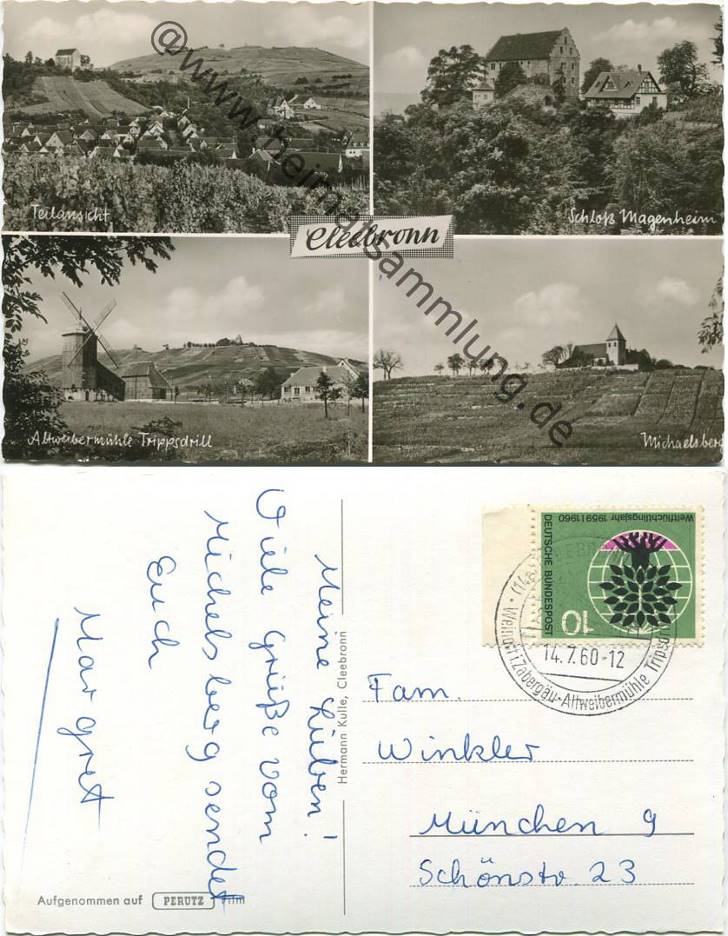 @www.heimatsammlung.de
Teilansicht
Schloß Magenheim
Cleebronn
Altweibermühle Trippsdrill
Michaelsberg
Meine Lieben!
Viele Grüße vom
Michelsberg sendet
Euch
Margret
Hermann Kulle, Cleebronn
Aufgenommen auf PERUTZ Film
Weltflüchtlingsjahr 1959/1960
DEUTSCHE BUNDESPOST
10
14.7.60-12
Altweibermühle Tripsdrill
Fam.
Winkler
München 9
Schönstr. 23